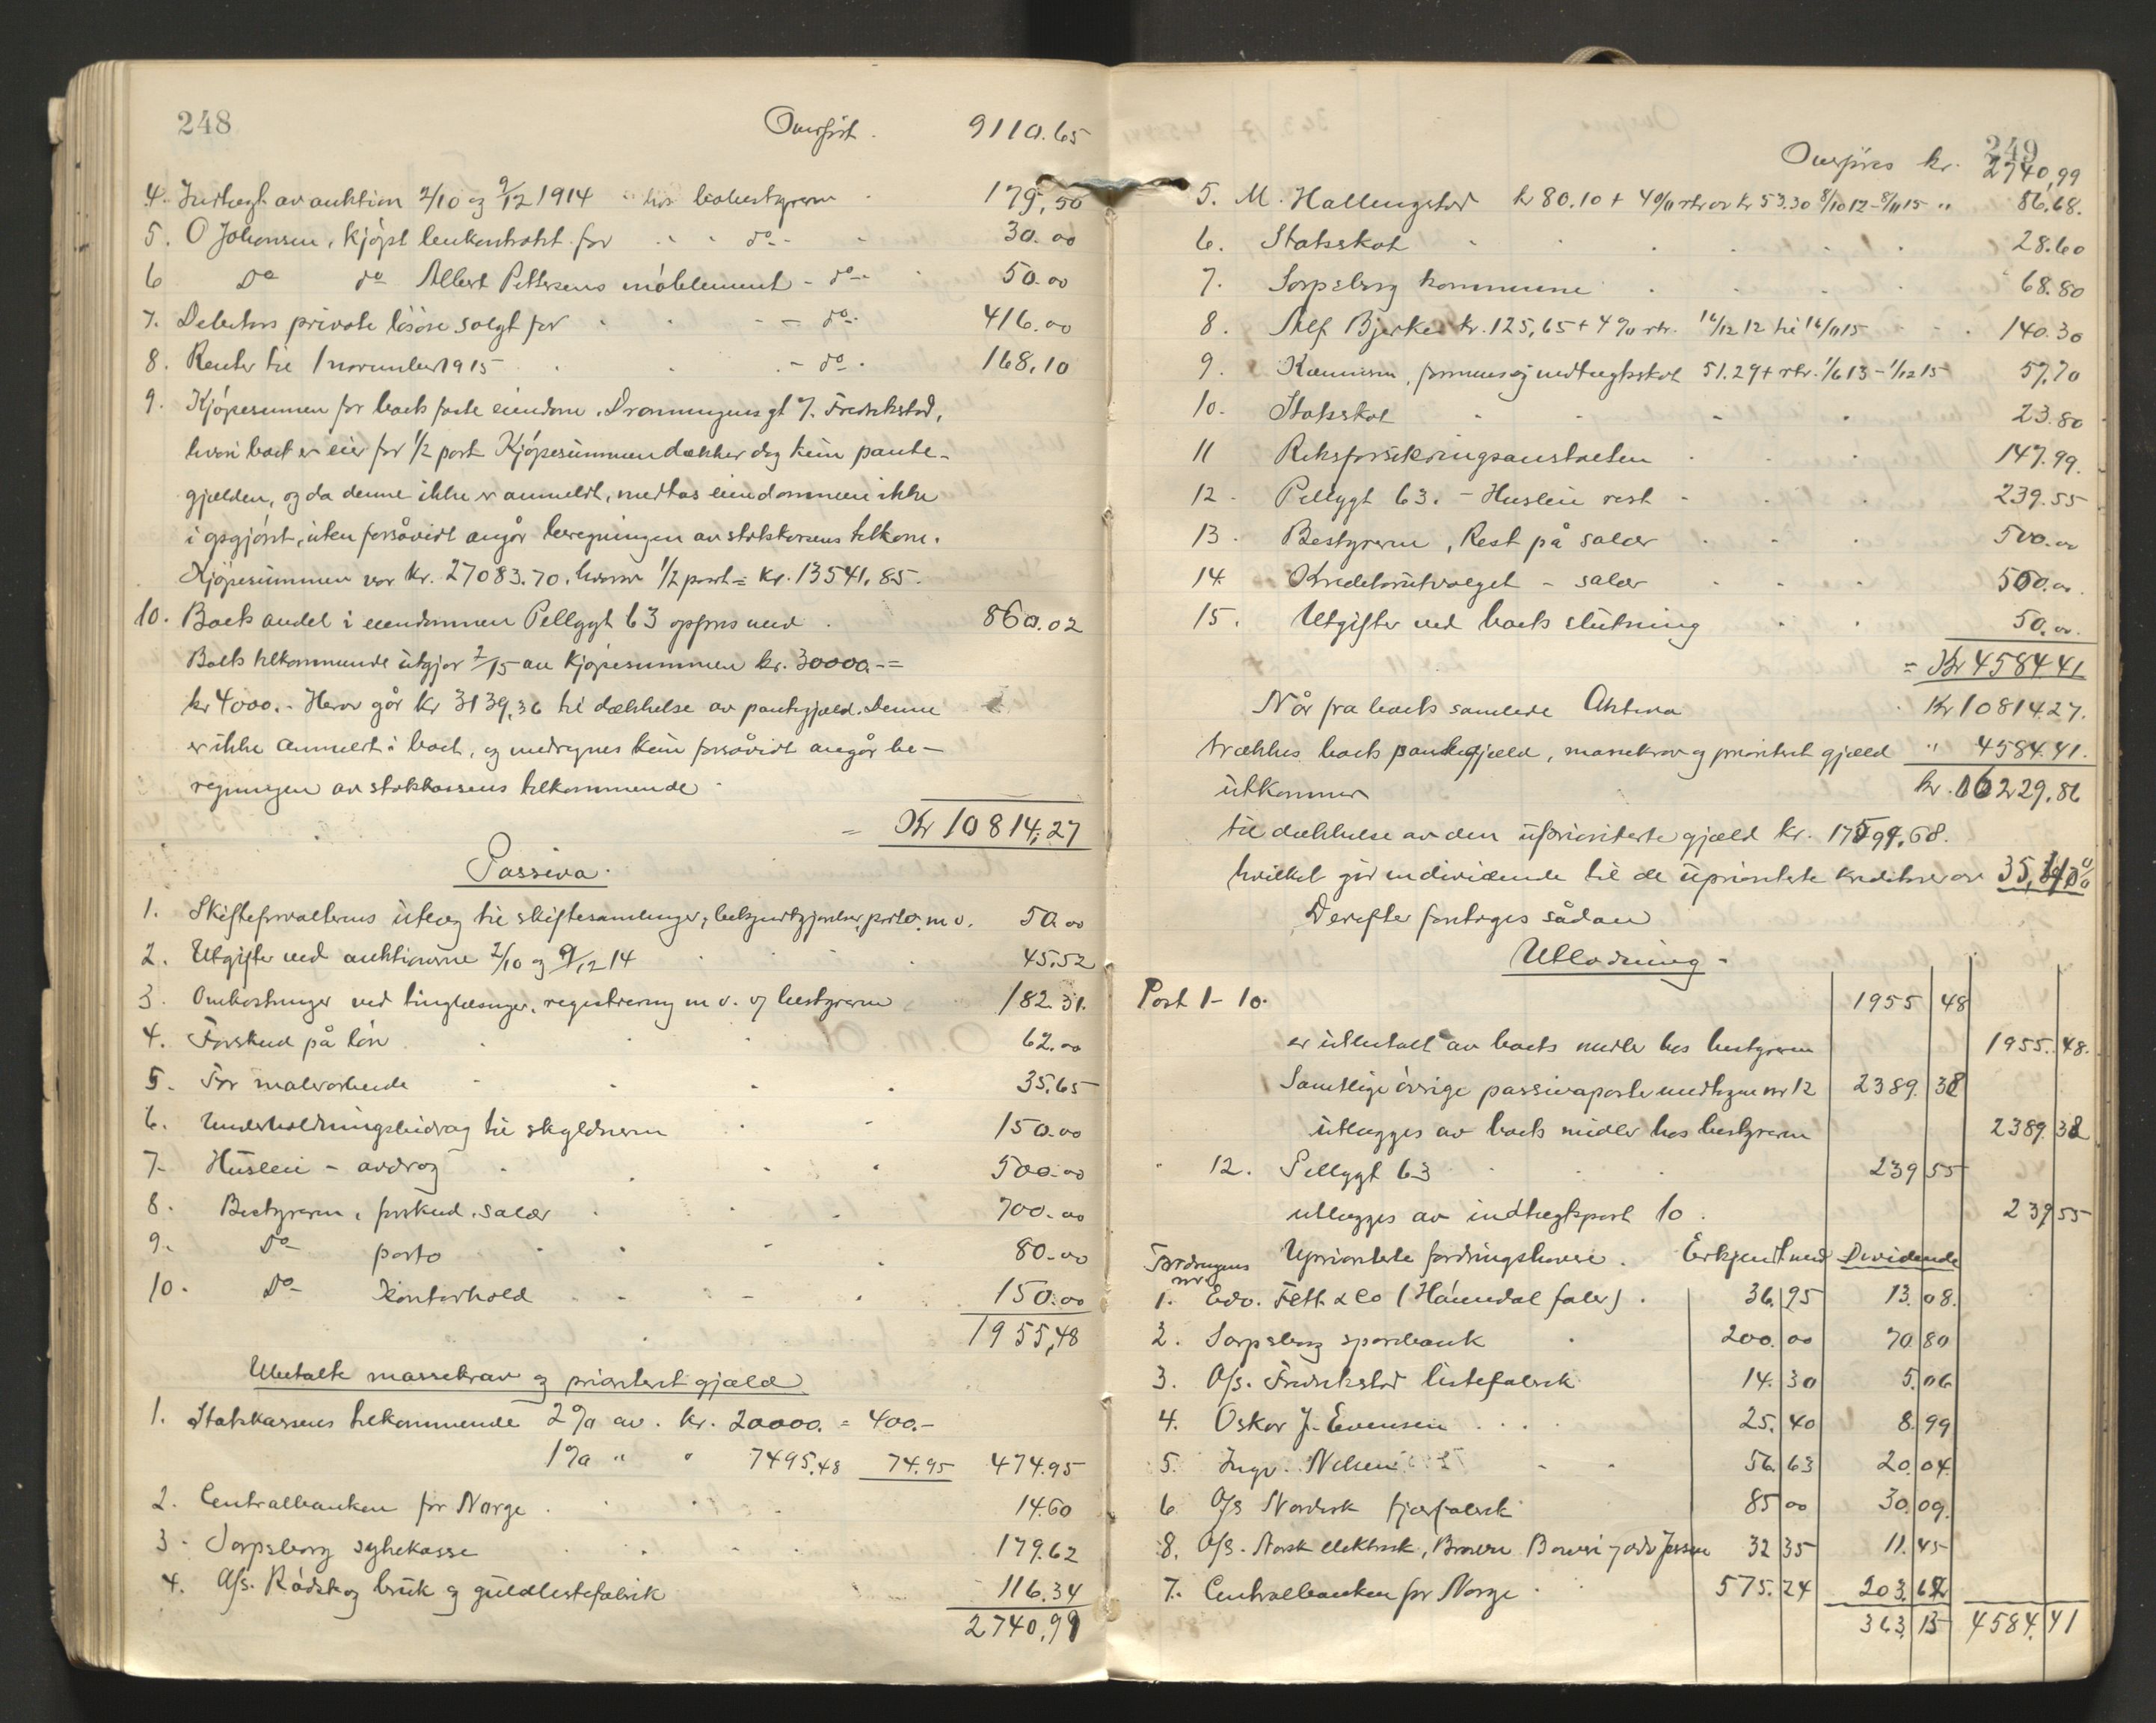 248
Overført. 9110.65
4. Indtægt av auktion 2/10 og 9/12 1914 hos bobestyreren 179,50
5. O Johansen, kjøpt leiekontrakt for do. 30.00
6 Do do Albert Pettersens møblement - do. 50.00
7. Debitors private løsøre solgt for - do. 416.00
8. Renter til 1 november 1915 - do. 168,10
9. Kjøpesummen for boets faste eiendom. Dronningens gt 7. Fredrikstad,
hvori boet er eier for 1/2 part. Kjøpesummen dækker dog kun pante-
gjælden, og da denne ikke er anmeldt, medtas eiendommen ikke
i opgjøret, uten forsåvidt angår beregningen av statskassens tilkom.
Kjøpesummen var kr. 27083.70. hvorav 1/2 part = kr. 13541,85.
10. Boets andel i eiendommen Pellygt 63 opføres med 860.02
Boets tilkommende utgjør 2/15 av kjøpesummen kr. 30000.- =
kr 4000.- Herav går kr 3139,36 til dækkelse av pantegjæld. Denne
er ikke anmeldt i boet, og medregnes kun forsåvidt angår be-
regningen av statskassens tilkommende
= Kr 10814,27
Passiva.
1. Skifteforvalterens utlæg til skiftesamlinger, bekjendtgjørelser, porto m v. 50.00
2. Utgifter ved auktionerne 2/10 og 9/12 14 45.52
3. Omkostninger ved tinglæsninger, registrering m v. v/ bestyreren 182.31.
4. Forskud på løn 62.00
5. For malerarbeide 35.65
6. Underholdningsbidrag til skyldneren 150.00
7. Husleie - avdrag 500.00
8. Bestyreren, forskud, salær 700.00
9. Do porto 80.00
10. Do Kontorhold 150.00
1955,48
Ubetalte massekrav og prioritert gjæld
1. Statskassens tilkommende 2% av. kr. 20000. = 400.-
1% " " 7495.48 74.95 474.95
2. Centralbanken for Norge 14.60
3. Sarpsborg sykekasse 179.62
4. A/s. Rådskog bruk og guldlistefabrik 116.34
2740,99
249
Overføres kr. 2740,99
5. M. Hallingstad kr 80.10 + 4% rtr av kr 53.30 8/10 12 - 8/11 15 " 86.68.
6. Statsskat 28.60
7. Sarpsborg kommune 68.80
8. Alf Bjerke kr. 125,65 + 4% rtr. 16/12 12 til 16/11 15 140.30
9. Kæmneren, formues og indtægtsskat 51.29 + rtr. 1/6 13 - 1/12 15 57.70
10. Statsskat 23.80
11 Riksforsikringsanstalten 147.99.
12 Pellygt 63. - Husleie rest 239.55
13. Bestyreren, Rest på salær 500.00
14. Kreditorutvalget - salær 500.00
15. Utgifter ved boets slutning 50.00.
= Kr 4584.41
Når fra boets samlede Aktiva Kr 10814.27.
trækkes boets pantegjæld, massekrav og prioritert gjæld " 4584.41.
utkommer kr. 6229,86
til dækkelse av den uprioriterte gjæld kr. 17597,68.
hvilket gir en dividende til de uprioriterte kreditorer av 35,40%
Derefter foretages sådan
Utlodning
Post 1-10. 1955 48
er utbetalt av boets midler hos bestyreren 1955.48.
Samtlige øvrige passivaposter undtagen nr 12 2389.38
utlægges av boets midler hos bestyreren 2389.38
" 12. Pellygt 63 239 55
utlægges av indtægtspost 10. 239 55
Fordringens nr. Uprioriterte fordringshavere. Erkjendt med Dividende
1. Edv. Fett & Co 36.95 13.08.
2. Sarpsborg sparebank 200.00 70 80
3. A/s. Fredrikstad listefabrik 14.30 5.06
4. Oskar J. Evensen 25.40 8.99
5. Ingv. Nilsen 56.63 20.04
6 A/s Nordisk fjærfabrik 85 00 30.09.
8. A/s. Norsk elektrisk, Brown Boveri 32 35 11.45
7. Centralbanken for Norge 575.24 203.62
363.13 4584.41